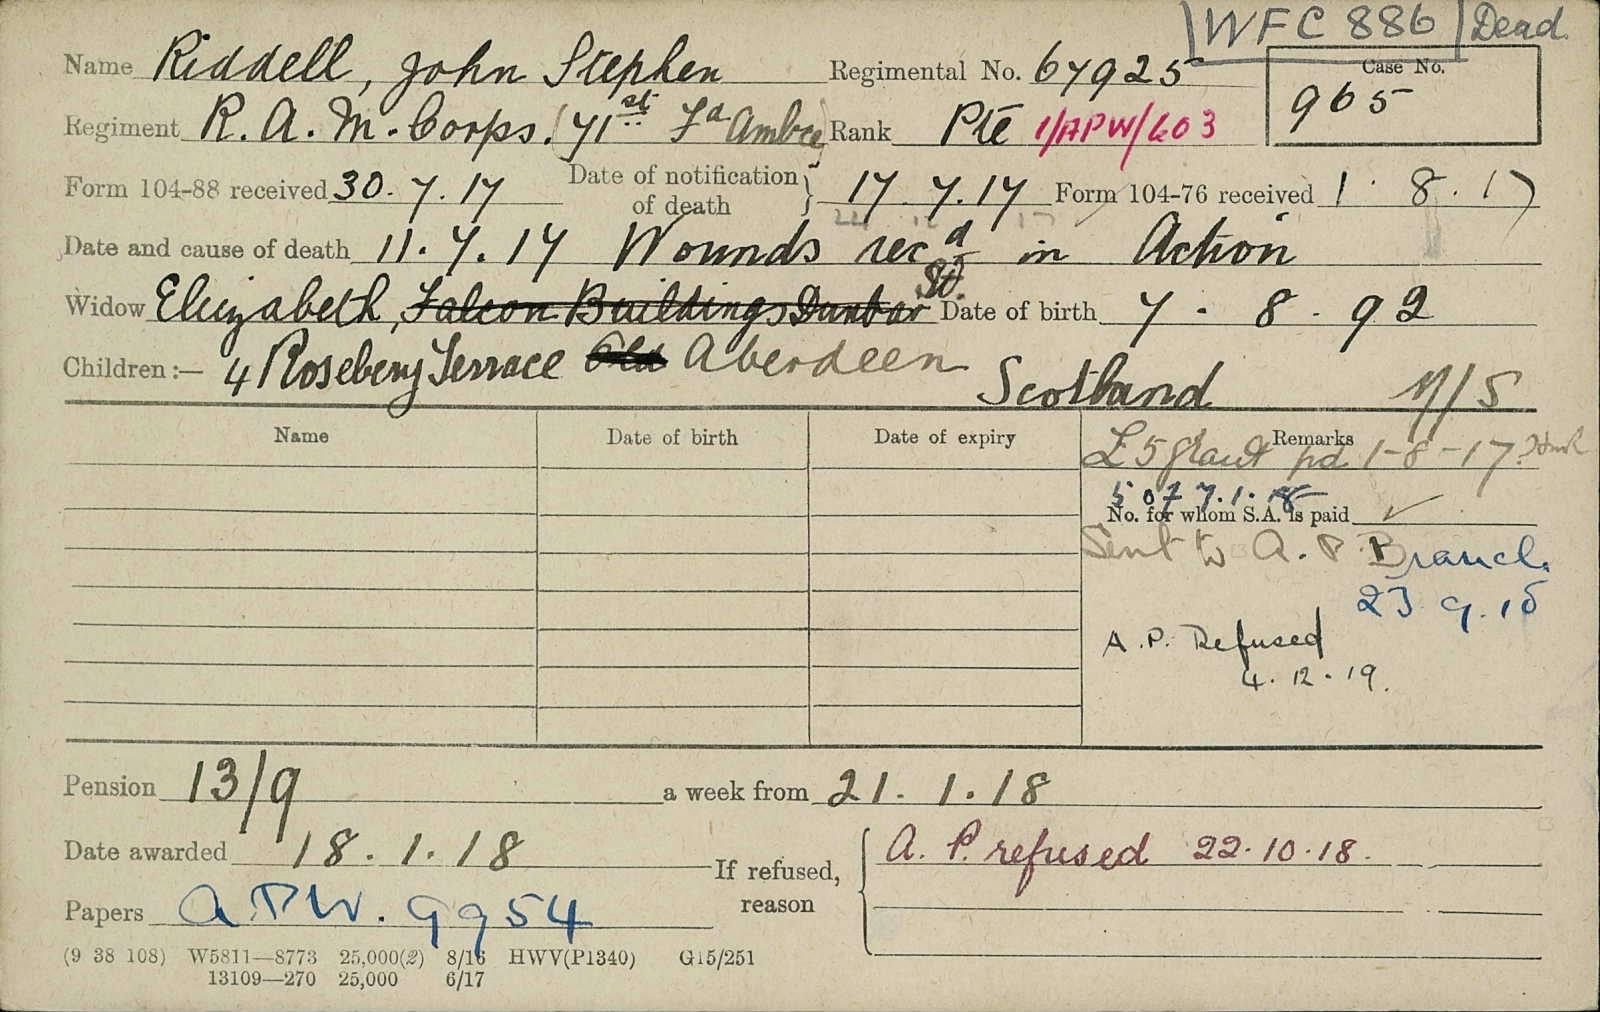 WFC 886 Dead.
Name Riddell, John Stephen Regimental No. 67925 Case No. 965
Regiment R.A.M. Corps. (71st Fd Ambce) Rank Pte 1/APW/603
Form 104-88 received 30.7.17 Date of notification of death } 17.7.17 Form 104-76 received 1.8.17
Date and cause of death 11.7.17 Wounds recd in Action
Widow Elizabeth, Falcon Buildings Dunbar St. Date of birth 7.8.92
Children:— 4 Rosebery Terrace Old Aberdeen Scotland N/S
Name Date of birth Date of expiry Remarks
£5 grant pd 1-8-17
507 7.1.18
No. for whom S.A. is paid ✓
Sent to A.P. Branch.
23.9.18
A.P. Refused
4.12.19.
Pension 13/9 a week from 21.1.18
Date awarded 18.1.18 If refused, reason A.P. refused 22.10.18.
Papers APW. 9954
(9 38 108) W5811—8773 25,000(2) 8/16 HWV(P1340) G15/251
13109—270 25,000 6/17